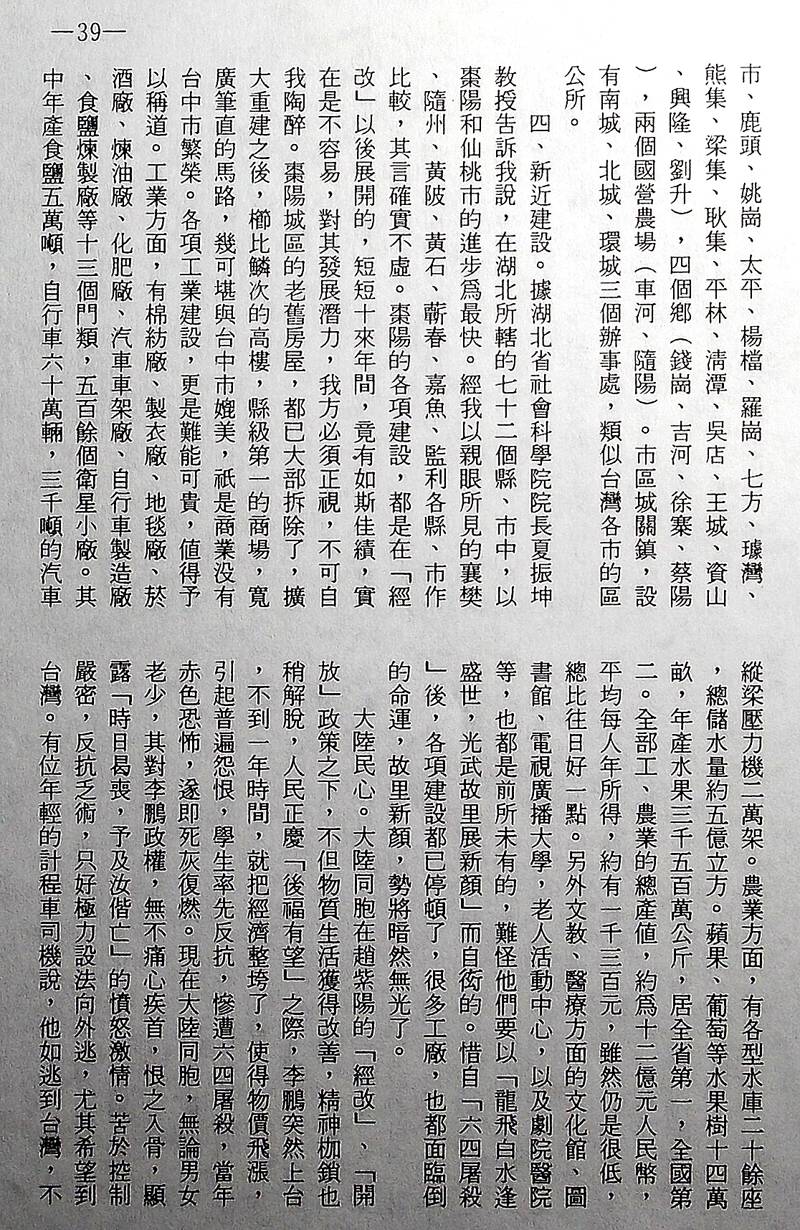 —39—
市、鹿頭、姚崗、太平、楊檔、羅崗、七方、璩灣、
熊集、梁集、耿集、平林、清潭、吳店、王城、資山
、興隆、劉升），四個鄉（錢崗、吉河、徐寨、蔡陽
），兩個國營農場（車河、隨陽）。市區城關鎮，設
有南城、北城、環城三個辦事處，類似台灣各市的區
公所。
四、新近建設。據湖北省社會科學院院長夏振坤
教授告訴我說，在湖北所轄的七十二個縣、市中，以
棗陽和仙桃市的進步爲最快。經我以親眼所見的襄樊
、隨州、黃陂、黃石、蘄春、嘉魚、監利各縣、市作
比較，其言確實不虛。棗陽的各項建設，都是在「經
改」以後展開的，短短十來年間，竟有如斯佳績，實
在是不容易，對其發展潛力，我方必須正視，不可自
我陶醉。棗陽城區的老舊房屋，都已大部拆除了，擴
大重建之後，櫛比鱗次的高樓，縣級第一的商場，寬
廣筆直的馬路，幾可堪與台中市媲美，祇是商業没有
台中市繁榮。各項工業建設，更是難能可貴，值得予
以稱道。工業方面，有棉紡廠、製衣廠、地毯廠、菸
酒廠、煉油廠、化肥廠、汽車車架廠、自行車製造廠
、食鹽煉製廠等十三個門類，五百餘個衛星小廠。其
中年產食鹽五萬噸，自行車六十萬輛，三千噸的汽車
縱梁壓力機二萬架。農業方面，有各型水庫二十餘座
，總儲水量約五億立方。蘋果、葡萄等水果樹十四萬
畝，年產水果三千五百萬公斤，居全省第一，全國第
二。全部工、農業的總產值，約爲十二億元人民幣，
平均每人年所得，約有一千三百元，雖然仍是很低，
總比往日好一點。另外文教、醫療方面的文化館、圖
書館、電視廣播大學，老人活動中心，以及劇院醫院
等，也都是前所未有的，難怪他們要以「龍飛白水逢
盛世，光武故里展新顏」而自衒的。惜自「六四屠殺
」後，各項建設都已停頓了，很多工廠，也都面臨倒
的命運，故里新顏，勢將暗然無光了。
大陸民心。大陸同胞在趙紫陽的「經改」、「開
放」政策之下，不但物質生活獲得改善，精神枷鎖也
稍解脫，人民正慶「後福有望」之際，李鵬突然上台
，不到一年時間，就把經濟整垮了，使得物價飛漲，
引起普遍怨恨，學生率先反抗，慘遭六四屠殺，當年
赤色恐怖，遂即死灰復燃。現在大陸同胞，無論男女
老少，其對李鵬政權，無不痛心疾首，恨之入骨，顯
露「時日曷喪，予及汝偕亡」的憤怒激情。苦於控制
嚴密，反抗乏術，只好極力設法向外逃，尤其希望到
台灣。有位年輕的計程車司機說，他如逃到台灣，不